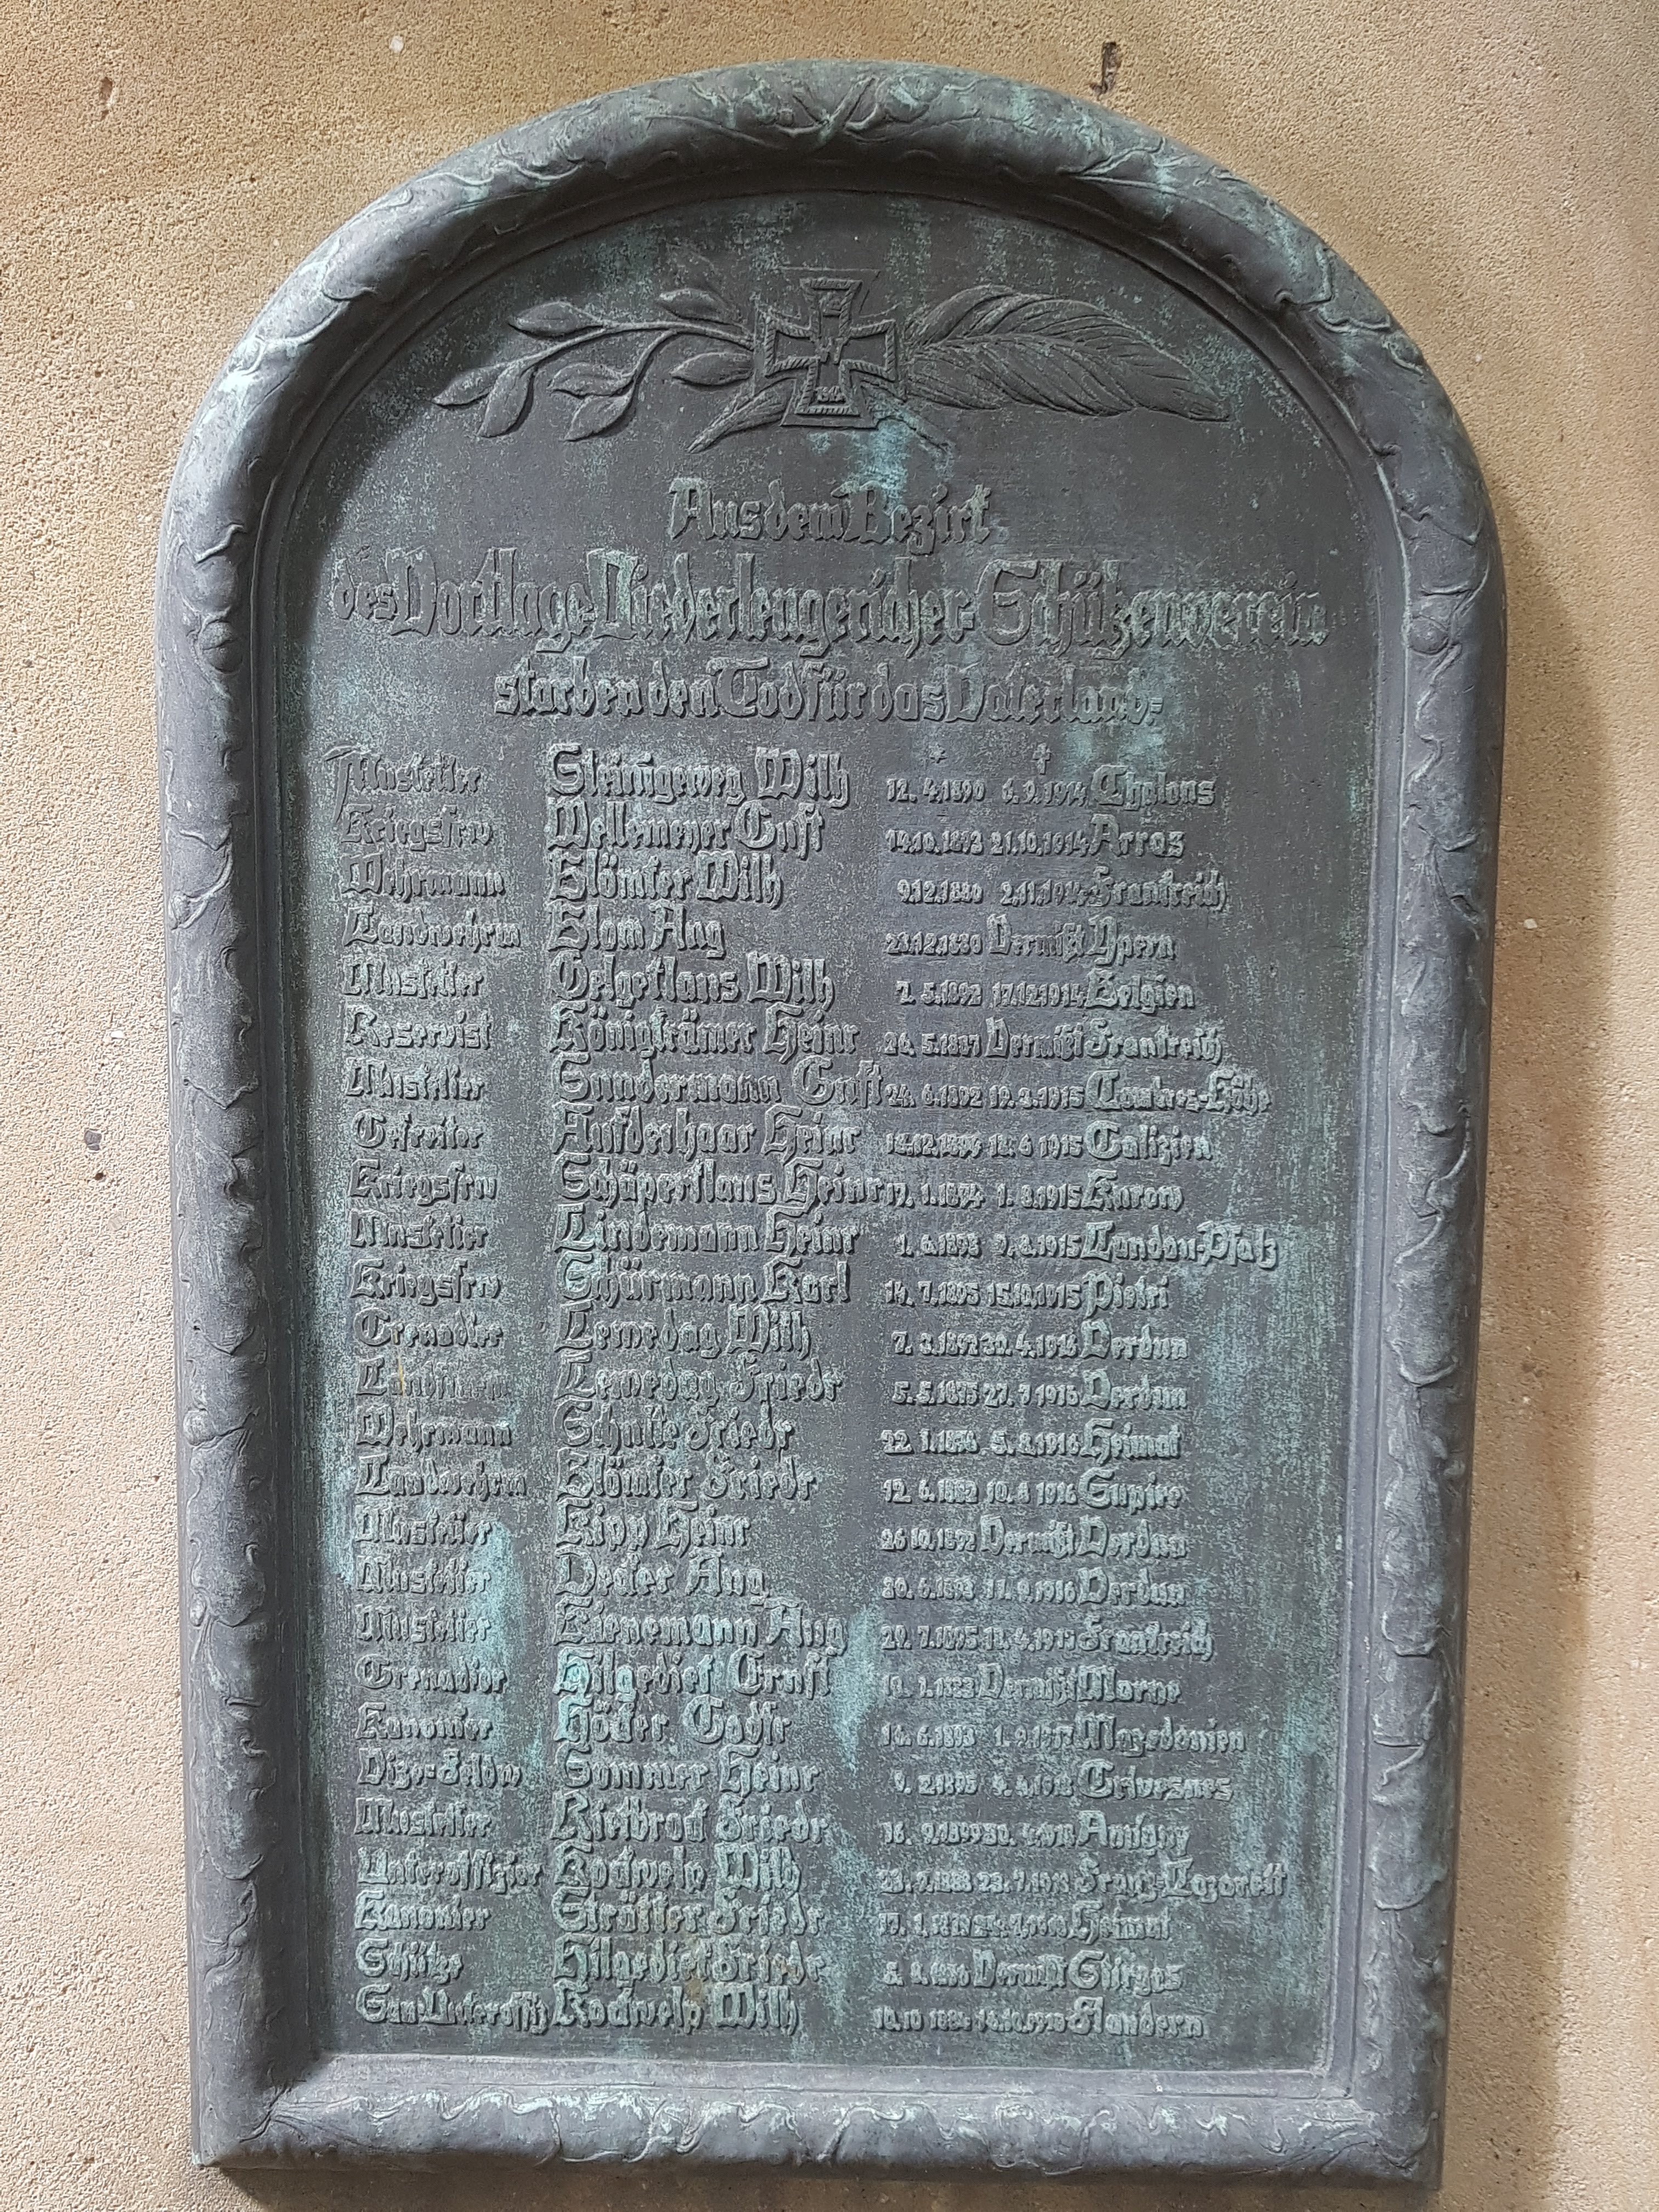 Aus dem Bezirk
des Vortlage-Niederlengericher-Schützenverein
starben den Tod für das Vaterland:
* †
Musketier Steinigeweg Wilh 12. 4.1890 6. 9.1914 Chalons
Kriegsfrw Wellemeyer Gust 14.10.1893 21.10.1914 Arras
Wehrmann Blömker Wilh 9.12.1880 2.11.1914 Frankreich
Landwehrm Blom Aug 23.12.1880 Vermißt Ypern
Musketier Oelgeklaus Wilh 7. 5.1892 17.12.1914 Belgien
Reservist Königkrämer Heinr Vermißt Frankreich
Musketier Sundermann Gust 24. 6.1892 19. 3.1915 Combres-Höhe
Gefreiter Aufderhaar Heinr 1915 Galizien
Kriegsfrw Schäperklaus Heinr 17. 1.1874 1. 8.1915 Kurow
Musketier Lindemann Heinr 1. 6.1893 9. 8.1915 Landau-Pfalz
Kriegsfrw Schürmann Karl 14. 7.1895 15.10.1915 Pietri
Grenadier Lemedag Wilh 7. 3.1892 30. 4.1916 Verdun
Landsturm Lemedag Friedr 5. 5.1875 27. 7.1916 Verdun
Wehrmann Schulte Friedr 22. 1.1876 5. 8.1916 Heimat
Landwehrm Blömker Friedr 12. 6.1882 10. 8 1916 Supire
Musketier Kipp Heinr 26.10.1892 Vermißt Verdun
Musketier Decker Aug 30. 6.1893 11. 9.1916 Verdun
Musketier Kienemann Aug 29. 7.1895 Frankreich
Grenadier Hilgediek Ernst Vermißt Marne
Kanonier Höcker Gottfr 14. 6.1893 1. 9.1917 Mazedonien
Vize-Feldw Sommer Heinr 4. 4.1918 Grivesnes
Musketier Kietbrock Friedr 16. 9.1899 Antigny
Unteroffizier Kochwelp Wilh Franz-Lazarett
Kanonier Strätter Friedr Heimat
Schütze Hilgediek Friedr Vermißt
San.Unteroffiz Kochwelp Wilh Flandern